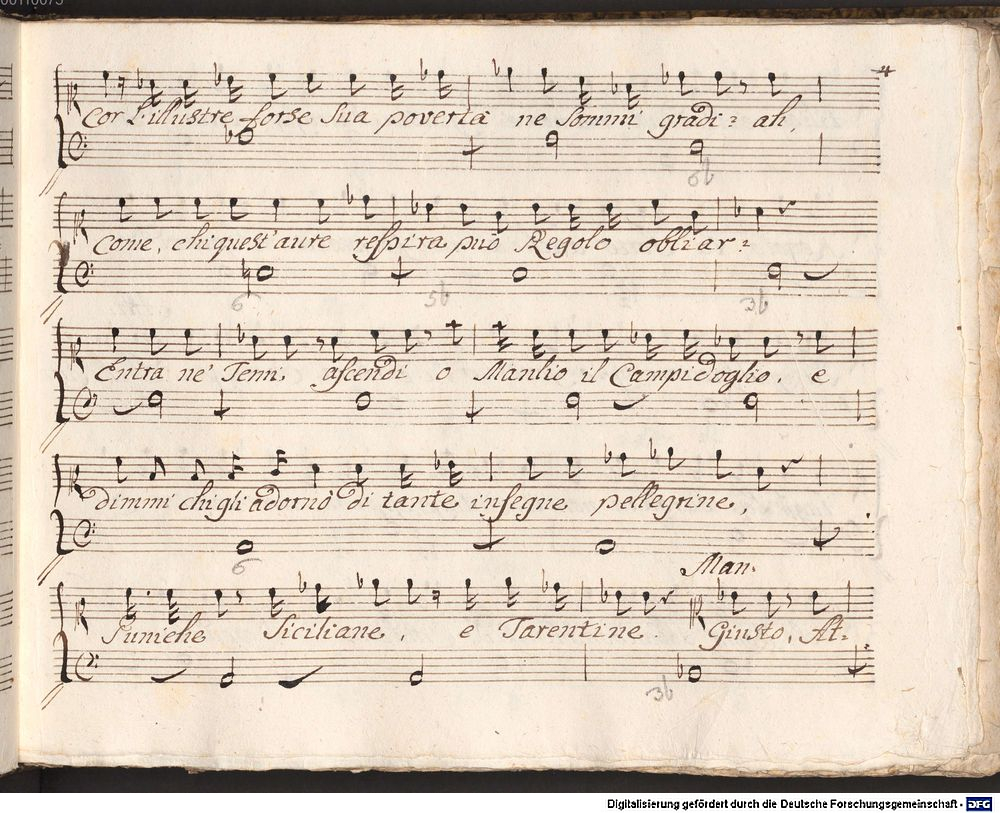 Cor l'illustre forse Sua povertà ne Sommi gradi: ah,
6b
Come, chi quest'aure respira può Regolo obliar:
6 5b 3b
Entra ne' Temi, ascendi o Manlio il Campidoglio, e
dimmi chi gli adornò di tante insegne pellegrine,
6
Man:
Puniche Siciliane, e Tarentine. Giusto, At:
3b
Digitalisierung gefördert durch die Deutsche Forschungsgemeinschaft - DFG